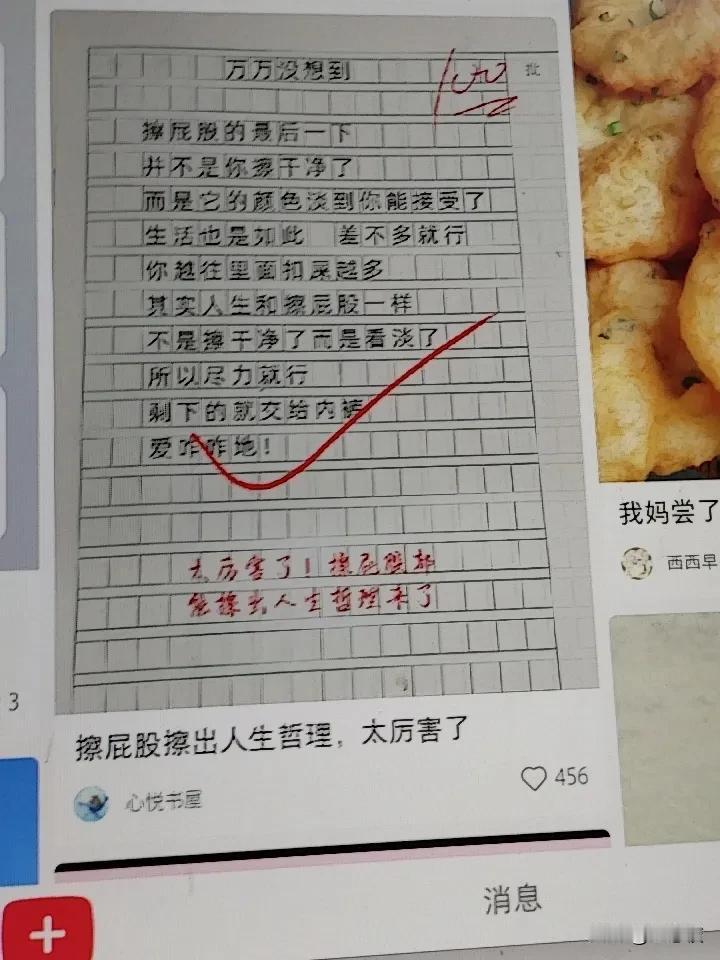 万万没想到
100
批
擦屁股的最后一下
并不是你擦干净了
而是它的颜色淡到你能接受了
生活也是如此 差不多就行
你越往里面扣屎越多
其实人生和擦屁股一样
不是擦干净了而是看淡了
所以尽力就行
剩下的就交给内裤
爱咋咋地!
太厉害了!擦屁股都
能擦出人生哲理来了
擦屁股擦出人生哲理,太厉害了
心悦书屋
456
3
我妈尝了
西西早
消息